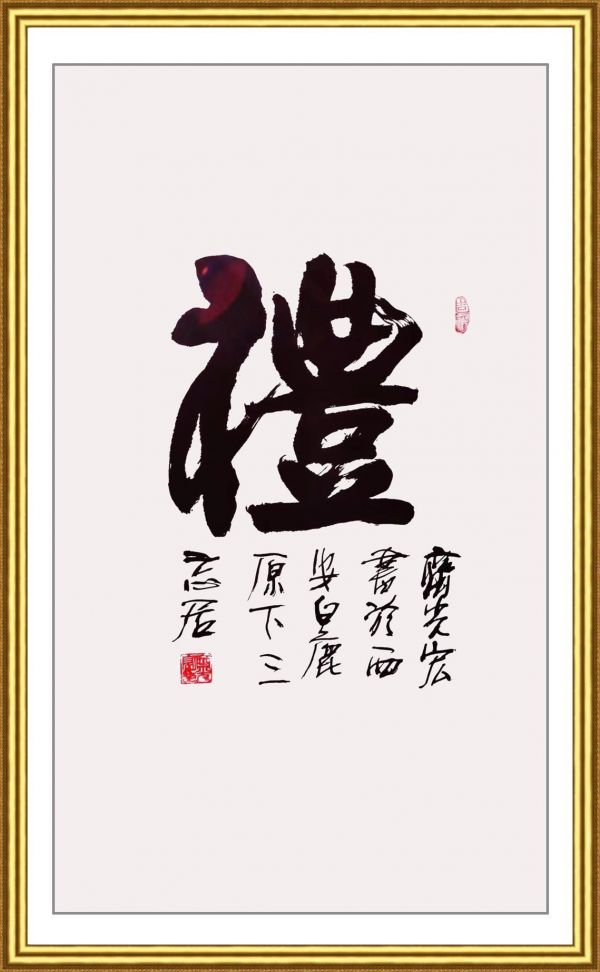 禮
光宏
書於西
安白鹿
原下三
忘居